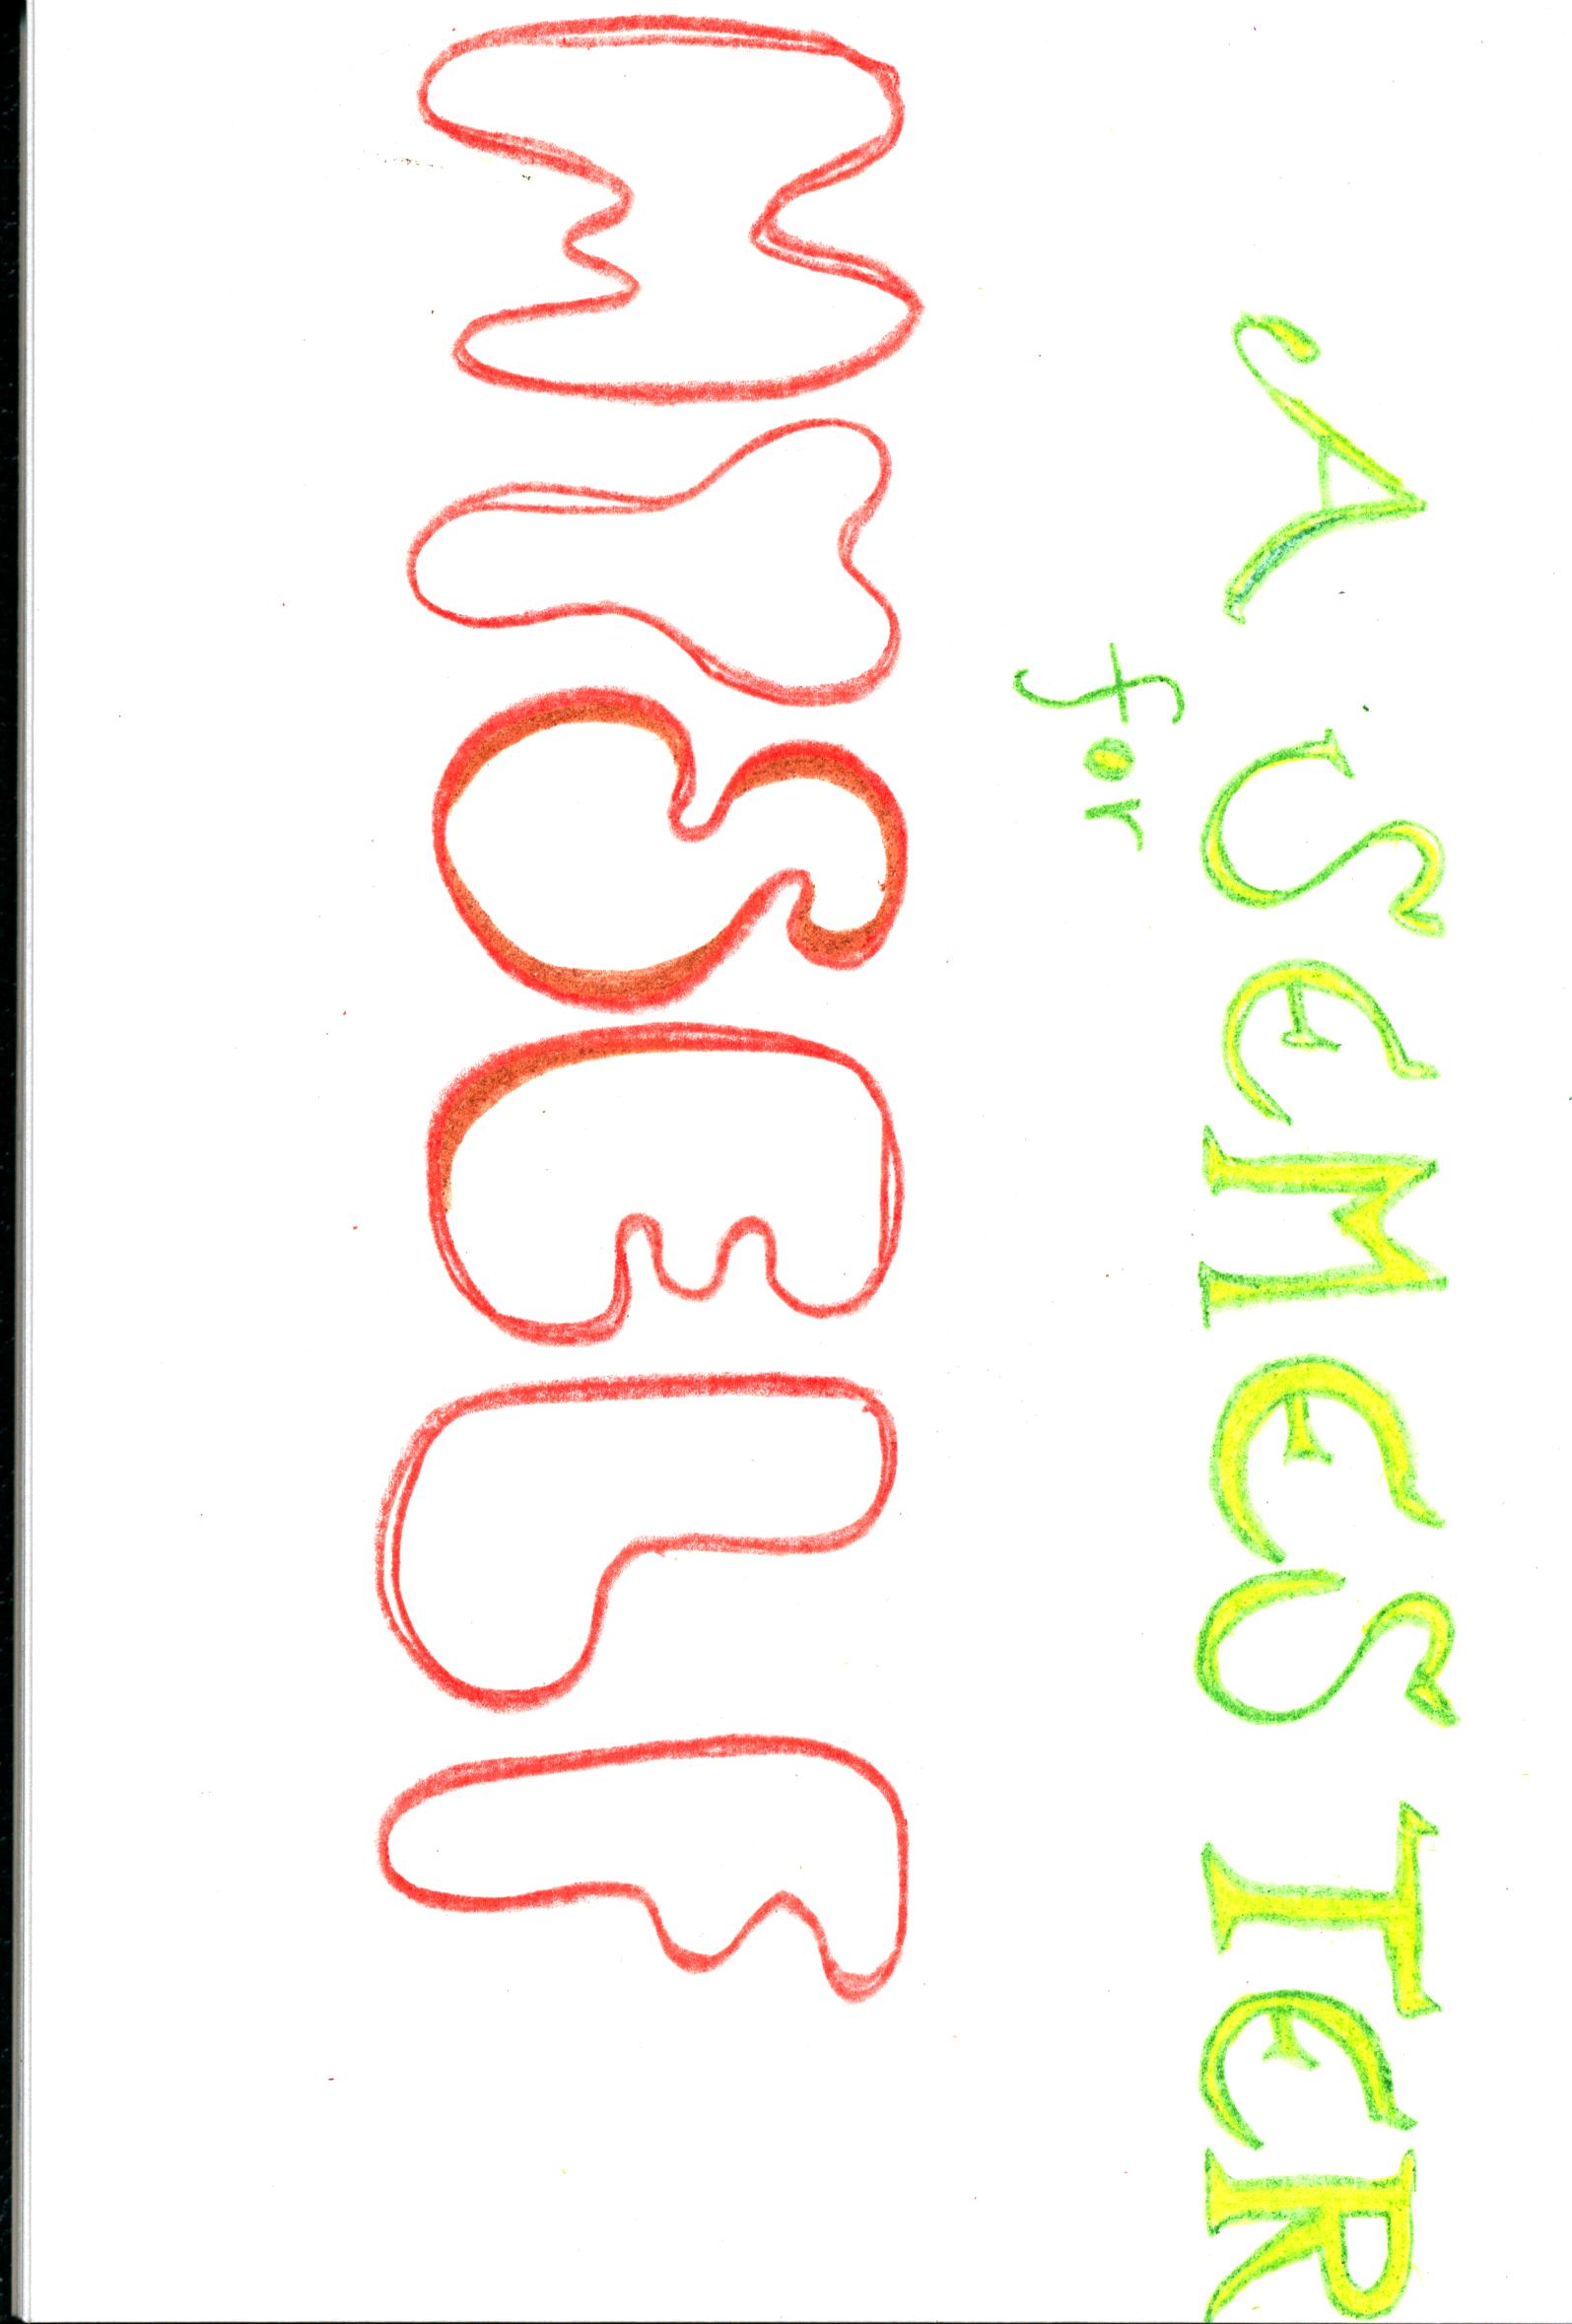 A SeMeSTeR
for
MYSELF